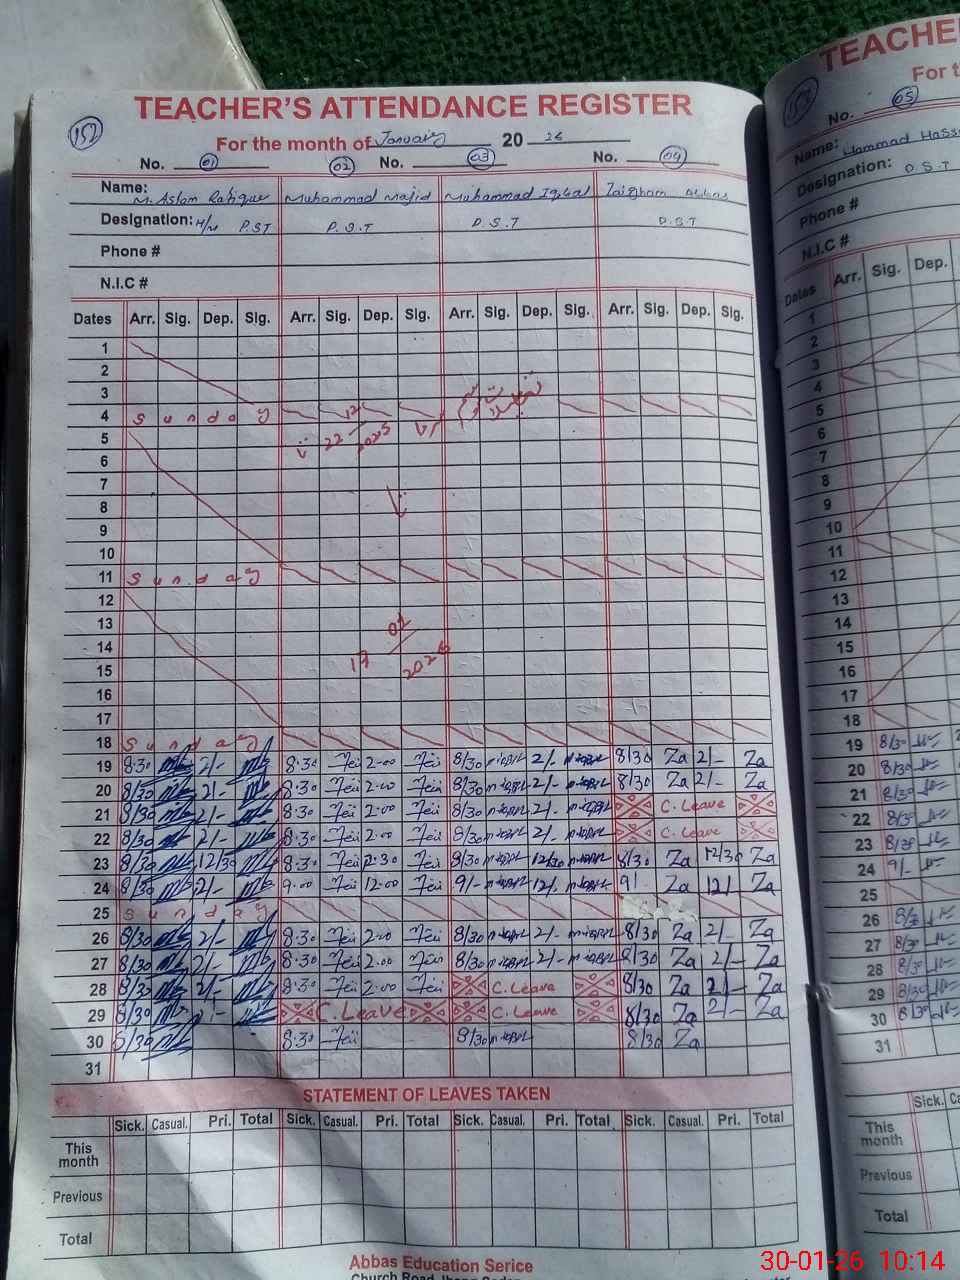 TEACHER'S ATTENDANCE REGISTER
152
For the month of January 20 26
No. 01 02 No. 03 No. 04
Name: M. Aslam Rafique Muhammad Majid Muhammad Iqbal Zaigham Abbas
Designation: H/M P.ST P.S.T P.S.T P.S.T
Phone #
N.I.C #
Dates Arr. Sig. Dep. Sig. Arr. Sig. Dep. Sig. Arr. Sig. Dep. Sig. Arr. Sig. Dep. Sig.
1
2
3
4 Sunday
تعطیلات موسم سرما
22 12 2025 تا
5
6
7
8
9
10
11 Sunday
12
13
14
17 01 2026
15
16
17
18 Sunday
19 8:30 2/- 8:30 2:00 8/30 2/- 8/30 Za 2/- Za
20 8/30 2/- 8:30 2:00 8/30 2/- 8/30 Za 2/- Za
21 8/30 2/- 8:30 2:00 8/30 2/- C. Leave
22 8/30 2/- 8:30 2:00 8/30 2/- C. Leave
23 8/30 12/30 8:30 2:30 8/30 12/30 8/30 Za 12/30 Za
24 8/30 2/- 9:00 12:00 9/- 12/- 9/- Za 12/- Za
25 Sunday
26 8/30 2/- 8:30 2:00 8/30 2/- 8/30 Za 2/- Za
27 8/30 2/- 8:30 2:00 8/30 2/- 8/30 Za 2/- Za
28 8/30 2/- 8:30 2:00 C. Leave 8/30 Za 2/- Za
29 8/30 C. Leave C. Leave 8/30 Za 2/- Za
30 8/30 8:30 8/30 8/30 Za
31
STATEMENT OF LEAVES TAKEN
Sick. Casual. Pri. Total Sick. Casual. Pri. Total Sick. Casual. Pri. Total Sick. Casual. Pri. Total
This month
Previous
Total
Abbas Education Serice
Church Road
TEACHE
153
For t
No. 05
Name: Hammad Hass
Designation: P.S.T
Phone #
N.I.C #
Dates Arr. Sig. Dep.
1
2
3
4
5
6
7
8
9
10
11
12
13
14
15
16
17
18
19 8/30
20 8/30
21 8/30
22 8/30
23 8/30
24 9/-
25
26 8/30
27 8/30
28 8/30
29 8/30
30 8/30
31
Sick.
This month
Previous
Total
30-01-26 10:14